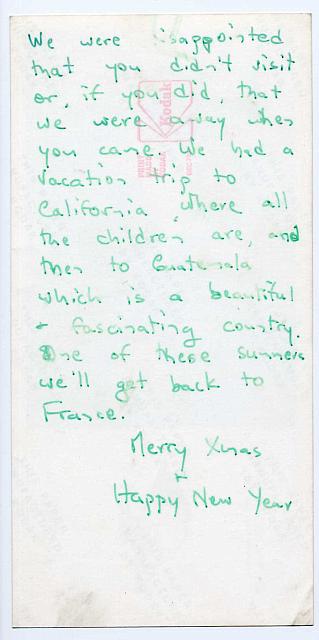 We were disappointed
that you didn't visit
or, if you did, that
we were away when
you came. We had a
vacation trip to
California, where all
the children are, and
then to Guatemala
which is a beautiful
+ fascinating country.
One of these summers
we'll get back to
France.
Merry Xmas
+
Happy New Year
Kodak